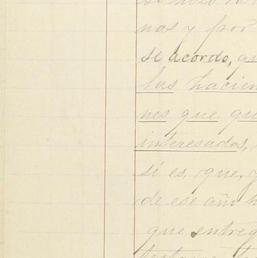 nos y por
se acordo, qu
las hacien
nes que qu
interesados,
sí es, que, y
de ese año h
que entreg